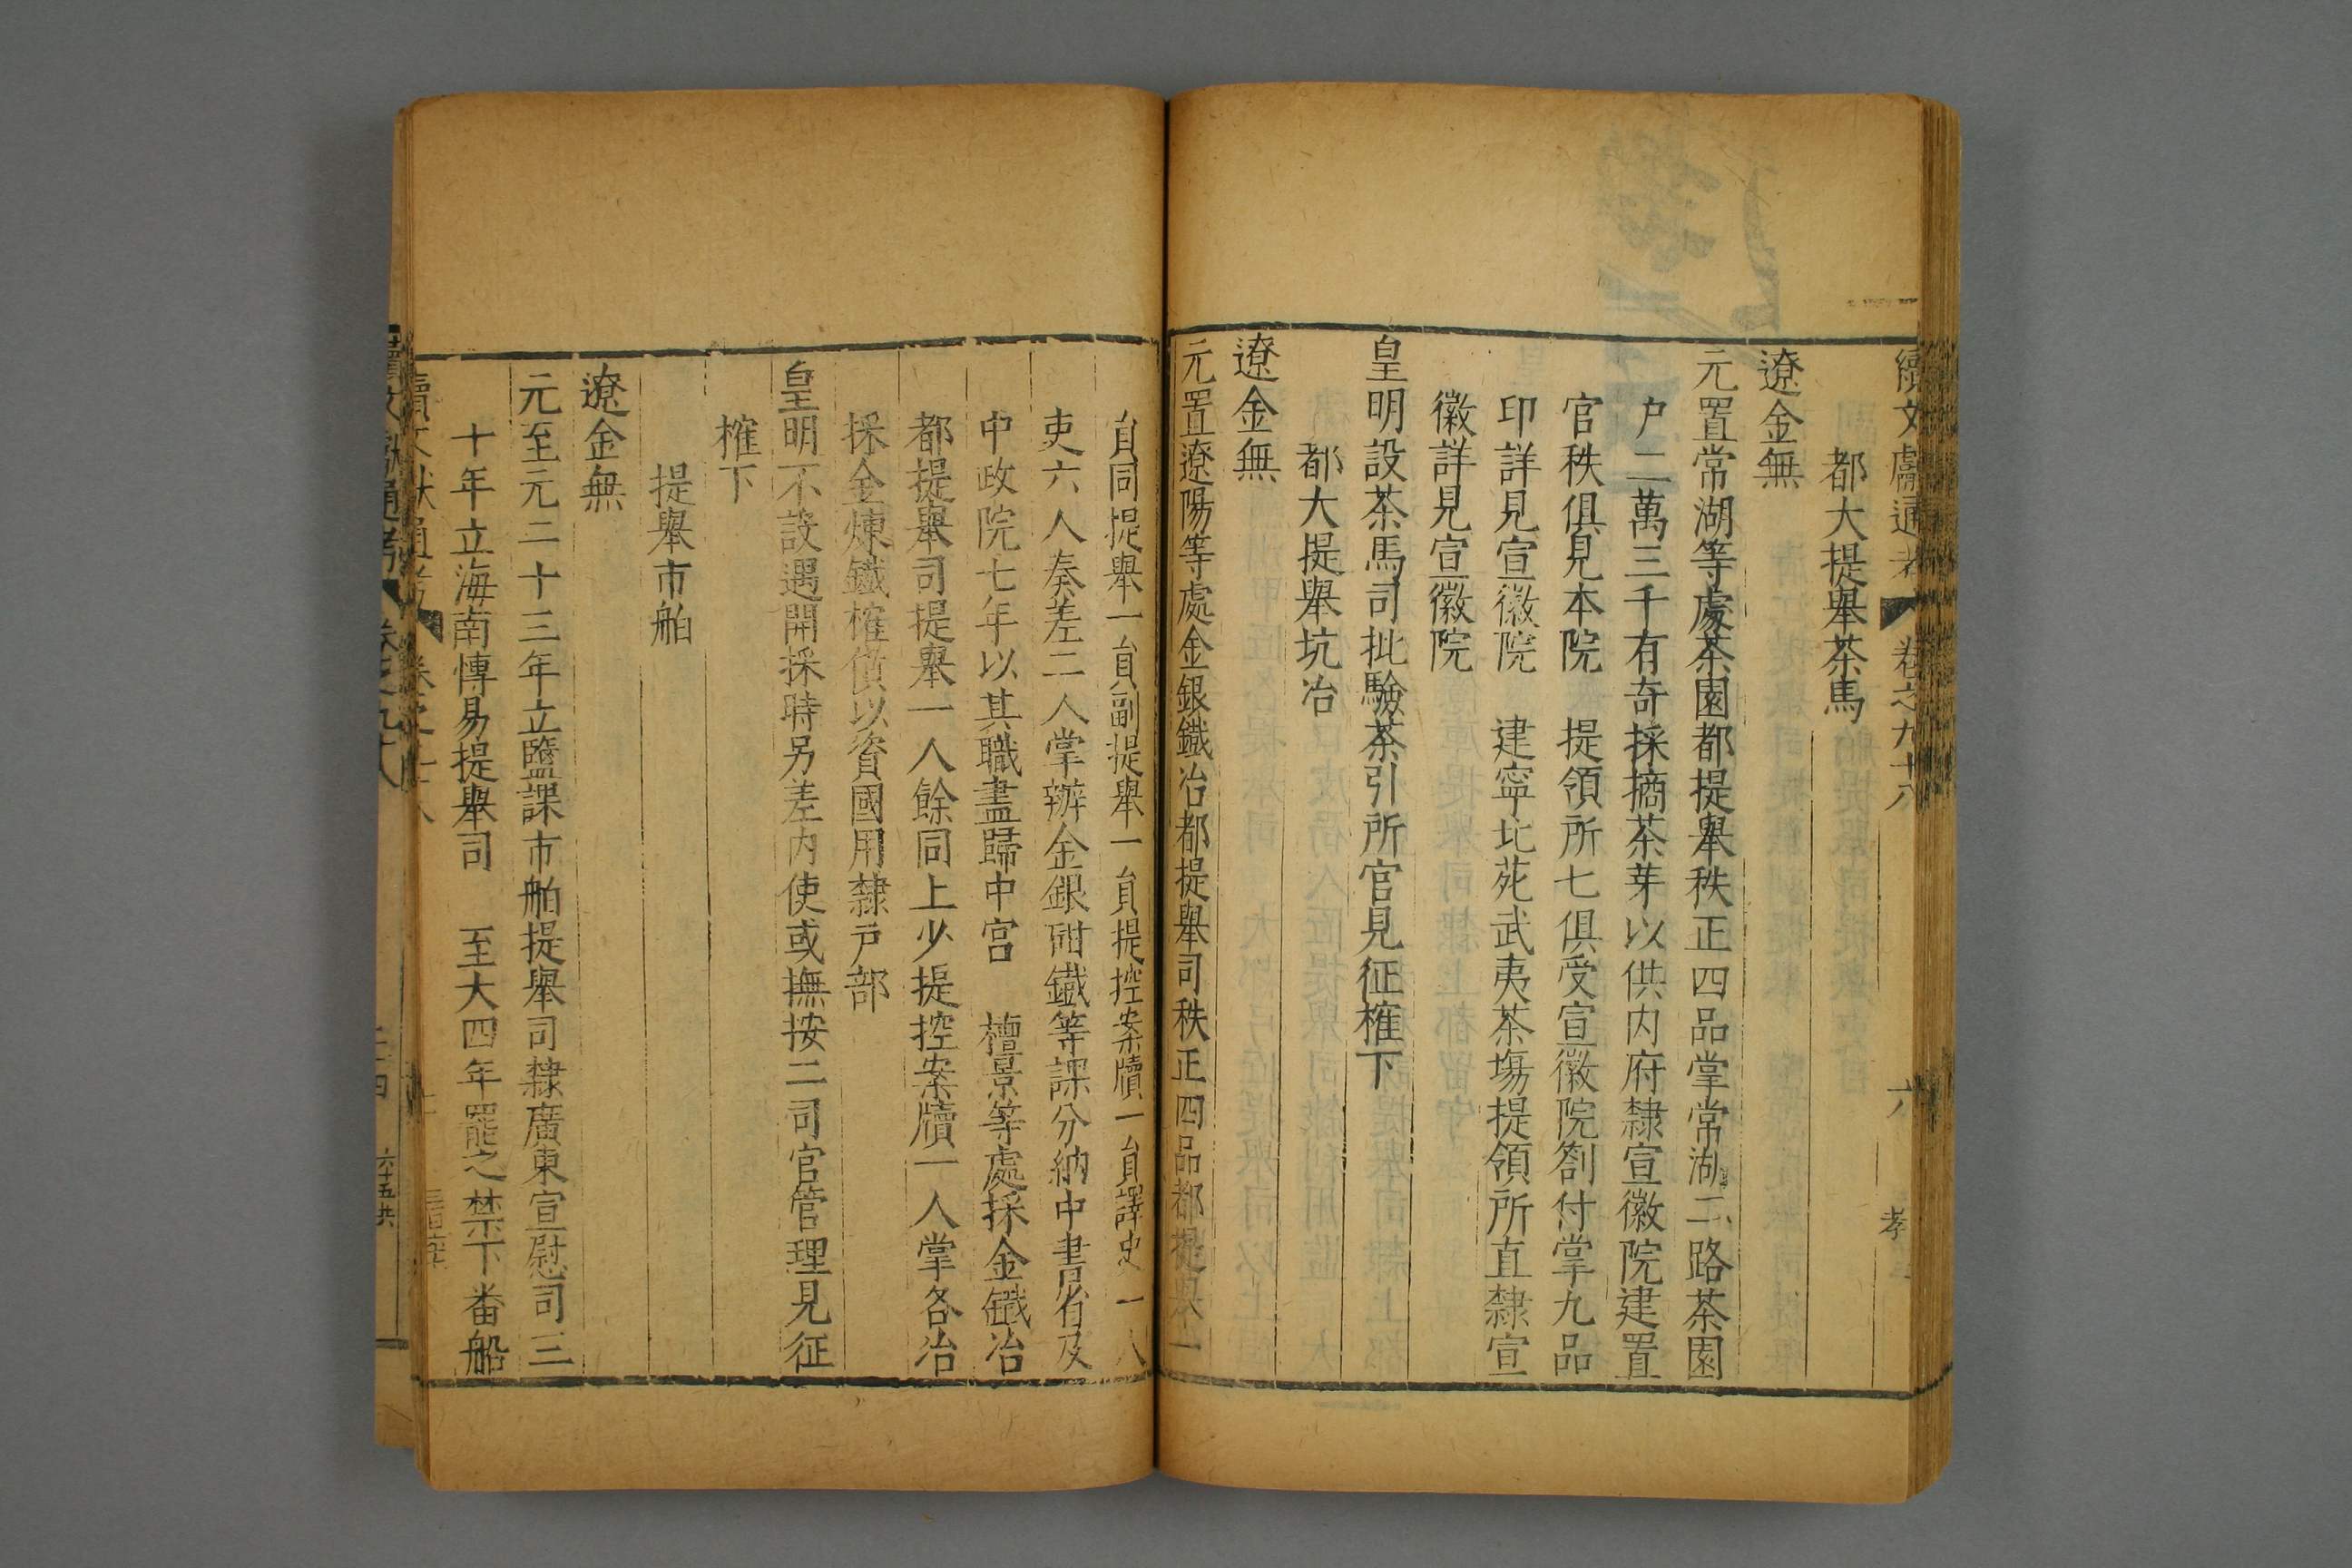 續文獻通考 卷之九十八 六 孝
都大提舉茶馬
遼金無
元置常湖等處茶園都提舉秩正四品掌常湖二路茶園
户二萬三千有奇採摘茶芽以供内府隸宣徽院建置
官秩俱見本院 提領所七俱受宣徽院劄付掌九品
印詳見宣徽院 建寧北苑武夷茶塲提領所直隸宣
徽詳見宣徽院
皇明設茶馬司批驗茶引所官見征榷下
都大提舉坑冶
遼金無
元置遼陽等處金銀鐵冶都提舉司秩正四品都提舉一
員同提舉一員副提舉一員提控案牘一員譯史一人
吏六人奏差二人掌辦金銀鉗鐵等課分納中書省及
中政院七年以其職盡歸中宫 檀景等處採金鐵冶
都提舉司提舉一人餘同上少提控案牘一人掌各冶
採金煉鐵榷價以資國用隸户部
皇明不設遇開採時另差内使或撫按二司官管理見征
榷下
提舉市舶
遼金無
元至元二十三年立鹽課市舶提舉司隸廣東宣慰司三
十年立海南博易提舉司 至大四年罷之禁下番船